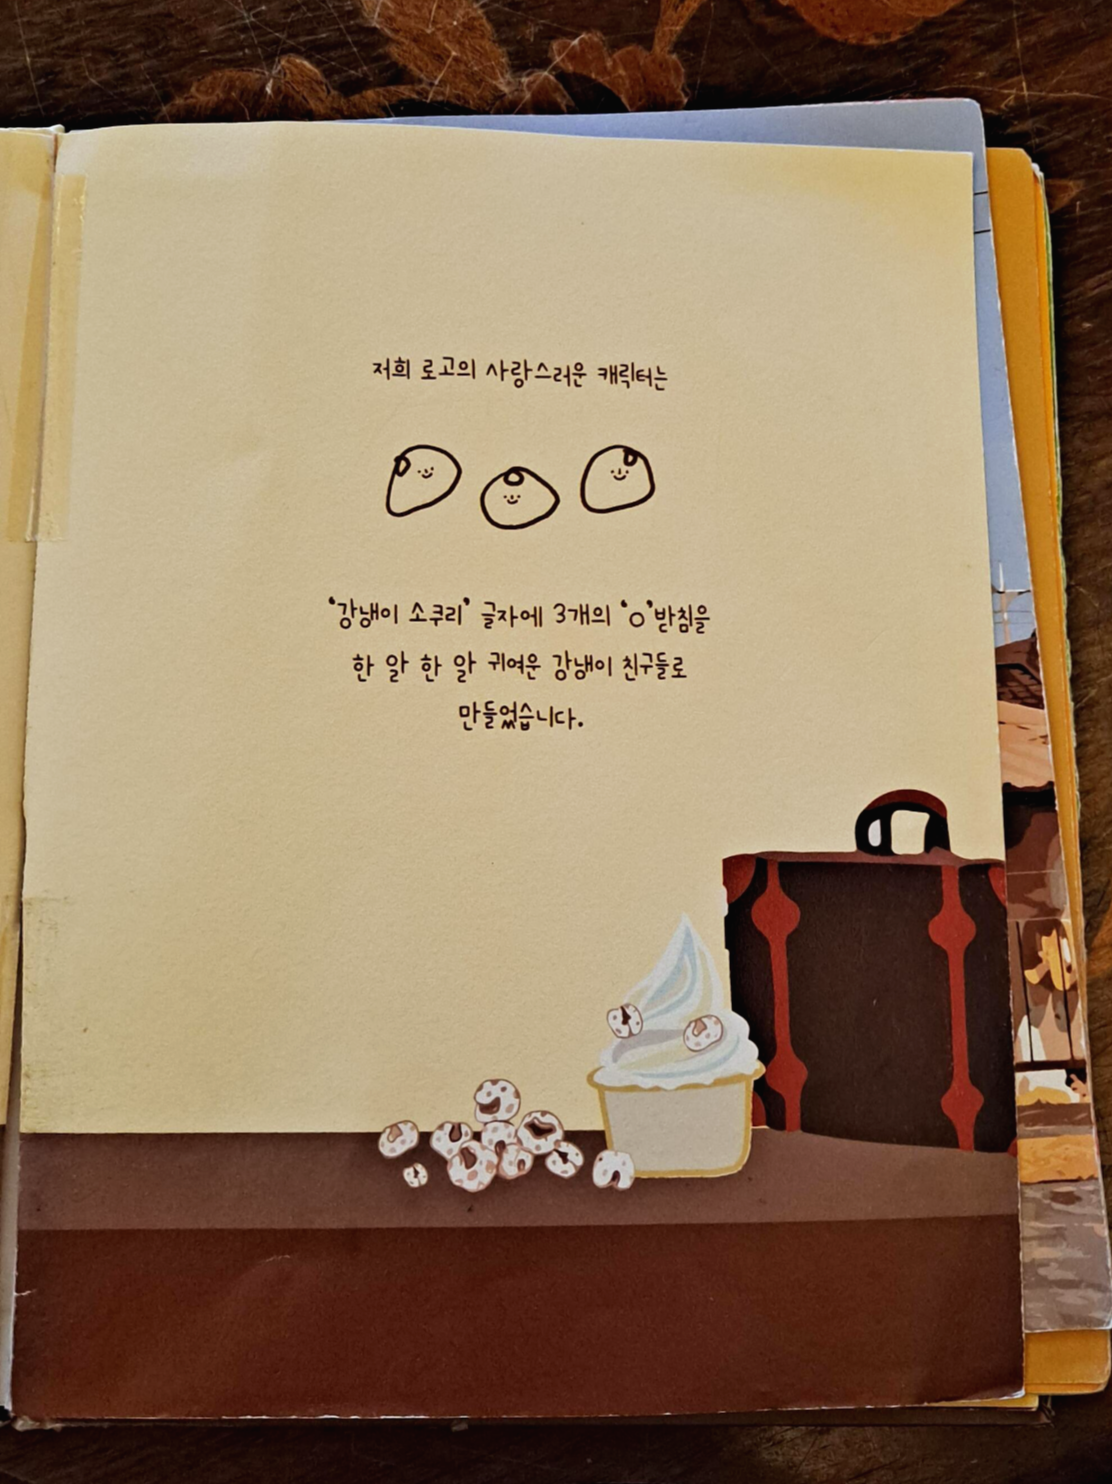 저희 로고의 사랑스러운 캐릭터는
'강냉이 소쿠리' 글자에 3개의 'ㅇ'받침을
한 알 한 알 귀여운 강냉이 친구들로
만들었습니다.